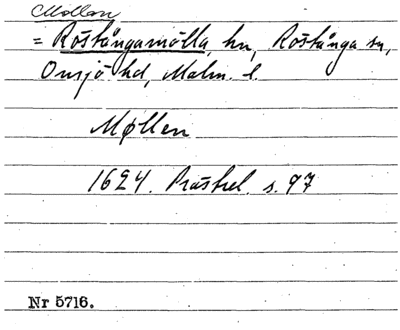 Møllan
= Röstångamölla, hn, Röstånga sn,
Onsjö hd, Malm. l.
Møllen
1624. Prästrel. s. 97
Nr 5716.